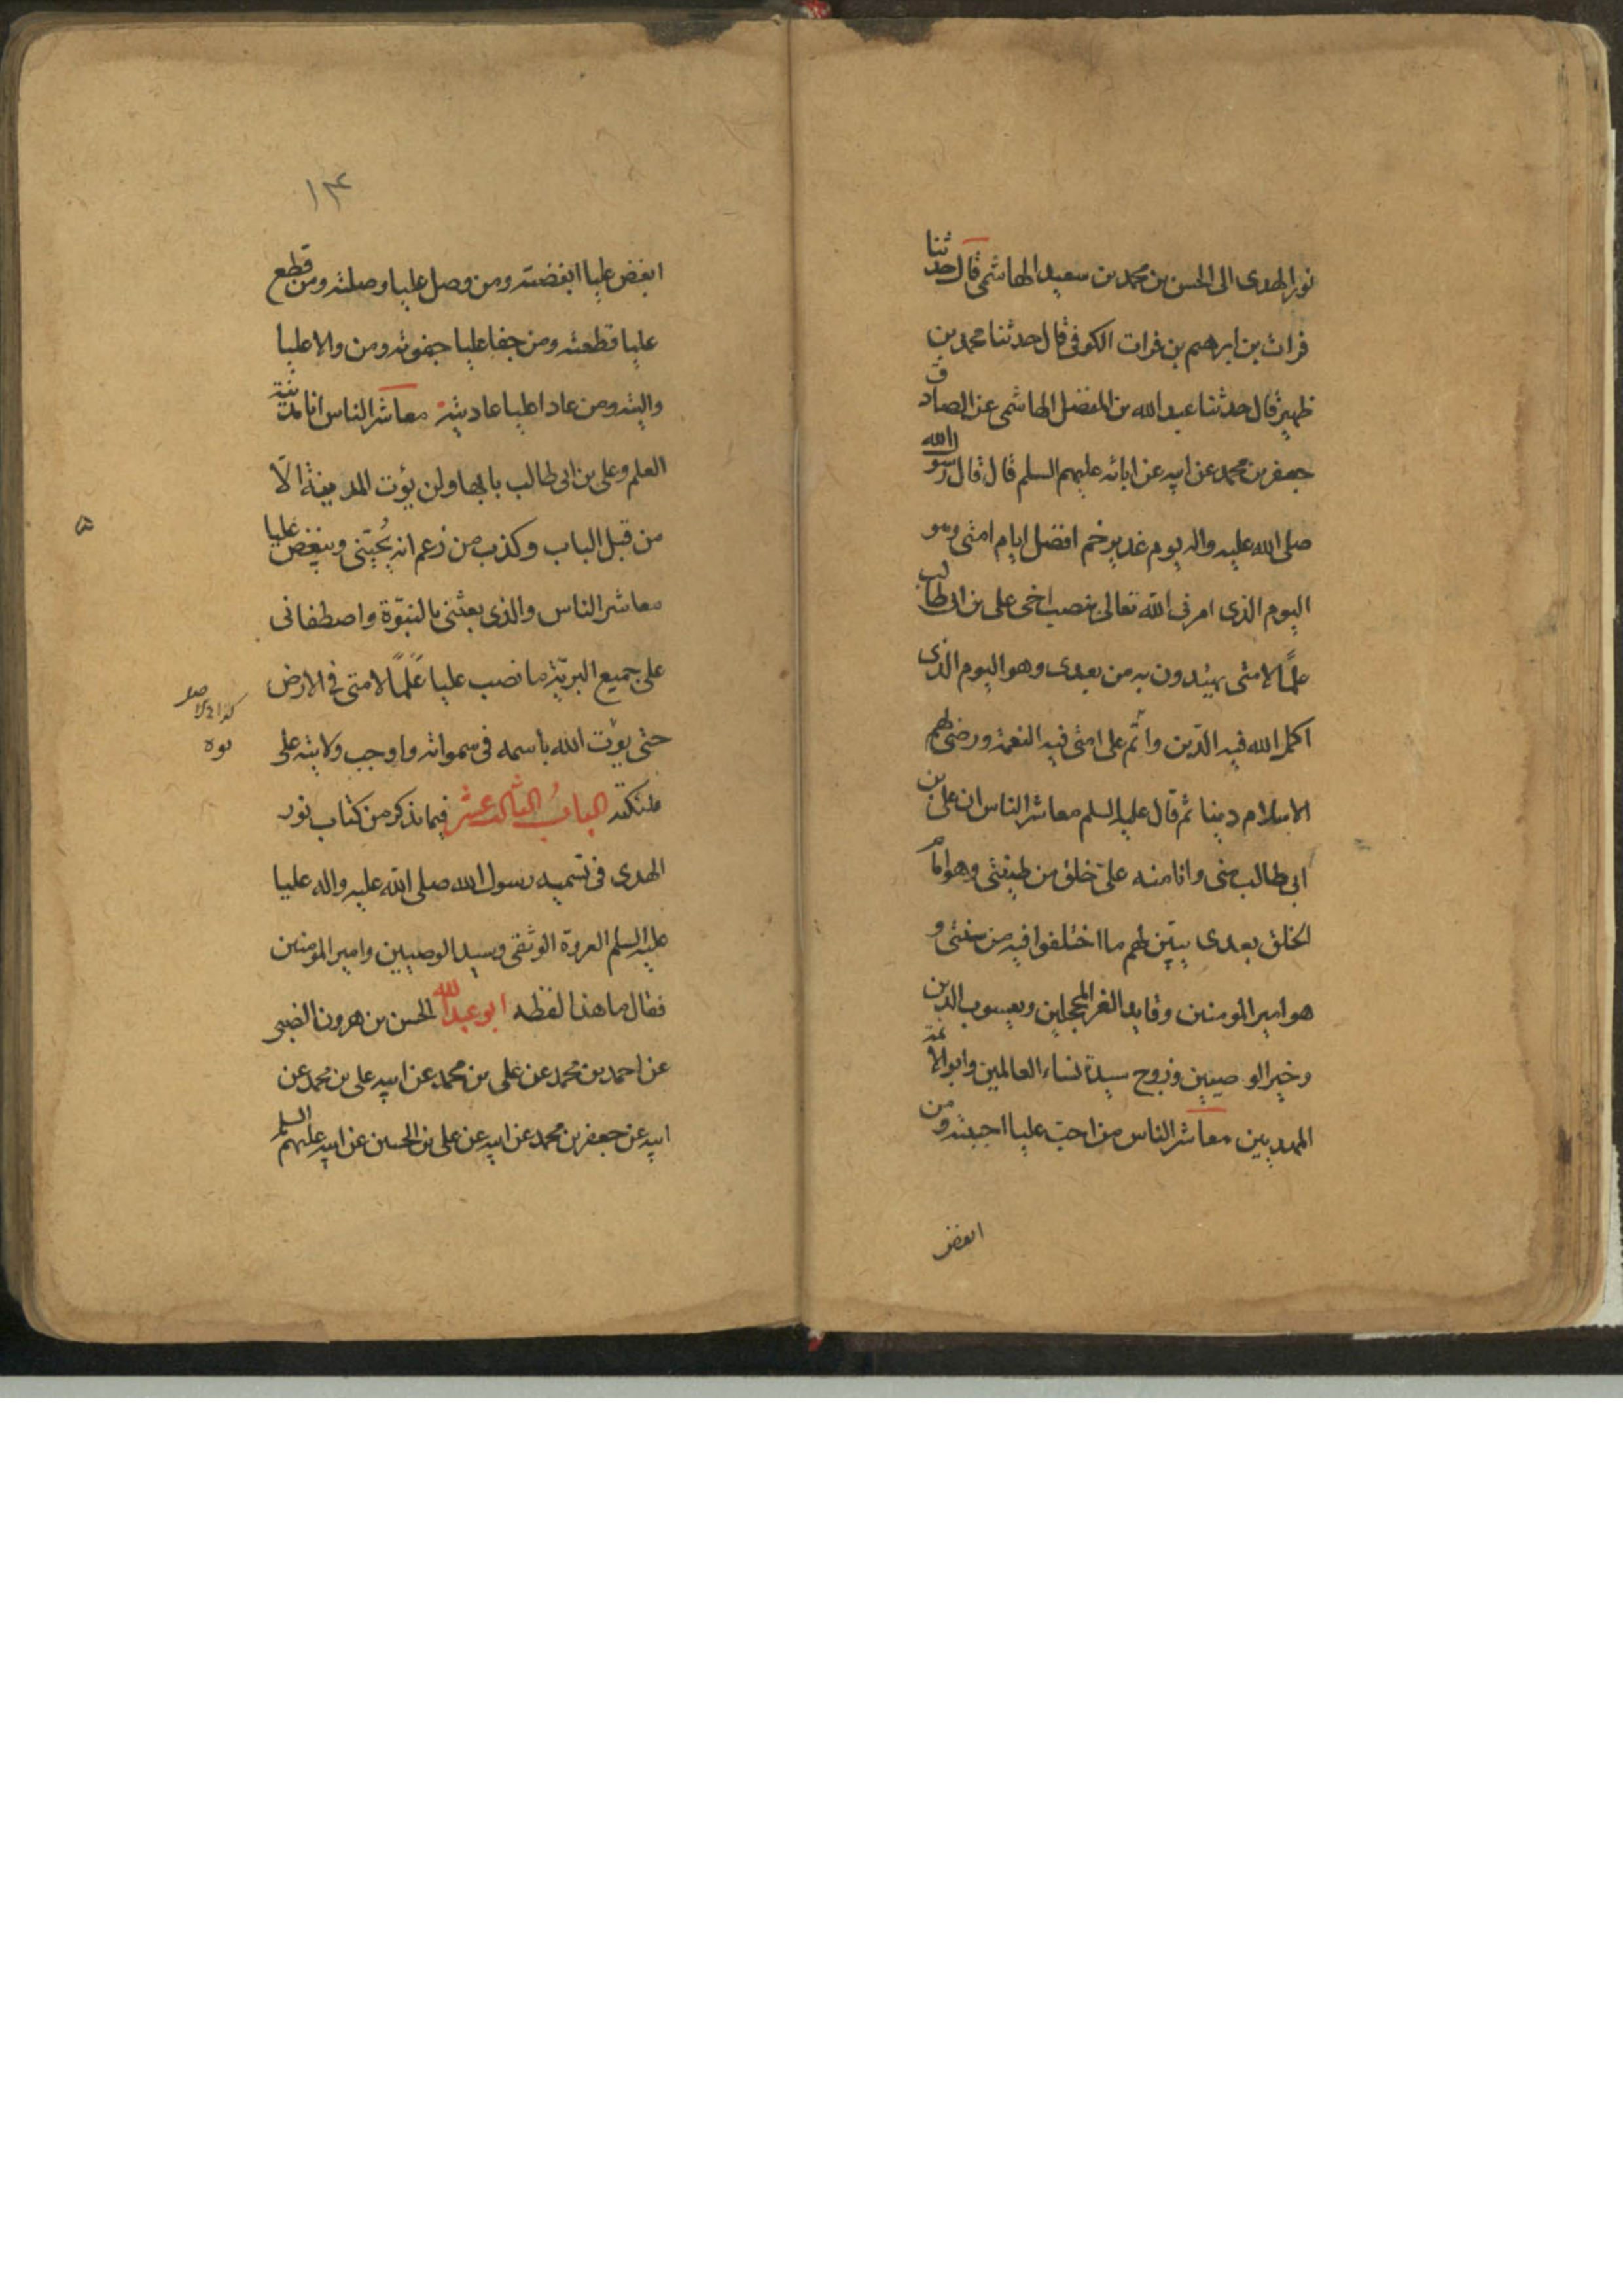 نور الهدى الى الحسن بن محمد بن سعيد الهاشمى قال حدثنا
فرات بن ابرهيم بن فرات الكوفى قال حدثنا محمد بن
ظهير قال حدثنا عبد الله بن الفضل الهاشمى عن الصادق
جعفر بن محمد عن ابيه عن ابائه عليهم السلم قال قال رسول الله
صلى الله عليه واله يوم غدير خم افضل ايام امتى وهو
اليوم الذى امرنى الله تعالى بنصب اخى على بن ابى طالب
علمًا لامتى يهتدون به من بعدى وهو اليوم الذى
اكمل الله فيه الدّين واتم على امتى فيه النعمة ورضى لهم
الاسلام دينا ثم قال عليه السلم معاشر الناس ان على بن
ابى طالب منى وانا منه على خلق من طينتى وهو امام
الخلق بعدى يبيّن لهم ما اختلفوا فيه من سنتى و
هو امير المومنين وقايد الغر المحجلين ويعسوب الدين
وخير الوصيين وزوج سيدة نساء العالمين وابو الائمة
المهديين معاشر الناس من احبّ عليا احببته ومن
ابغض
١٣
ابغض عليا ابغضته ومن وصل عليا وصلته ومن قطع
عليا قطعته ومن جفا عليا جفوته ومن والا عليا
واليته ومن عادا عليا عاديته معاشر الناس انا مدينة
العلم وعلى بن ابى طالب بابها ولن يؤت المدينة الّا
من قبل الباب وكذب من زعم انه يُحبّنى ويبغض عليا
معاشر الناس والذى بعثنى بالنبوّة واصطفانى
على جميع البريّة ما نصب عليا عَلَمًا لامتى فى الارض
حتى يوّت الله باسمه فى سمواته واوجب ولايته على
ملئكته البابُ الثالث عشر فيما نذكر من كتاب نور
الهدى فى تسميه رسول الله صلى الله عليه واله عليا
عليه السلم العروة الوثقى وسيد الوصيين وامير المومنين
فقال ما هذا لفظه ابو عبد الله الحسن بن هرون الضبى
عن احمد بن محمد عن على بن محمد عن ابيه على بن محمد عن
ابيه عن جعفر بن محمد عن ابيه عن على بن الحسين عن ابيه عليهم السلم
نوه